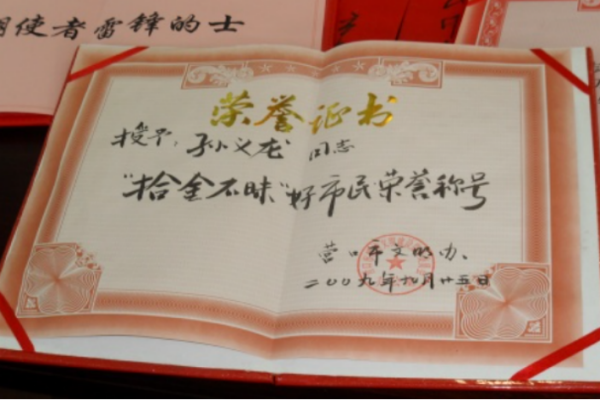 明使者雷锋的士
荣誉证书
授予:孙义龙 同志
"拾金不昧"好市民荣誉称号
营口市文明办、
二00九年九月廿五日